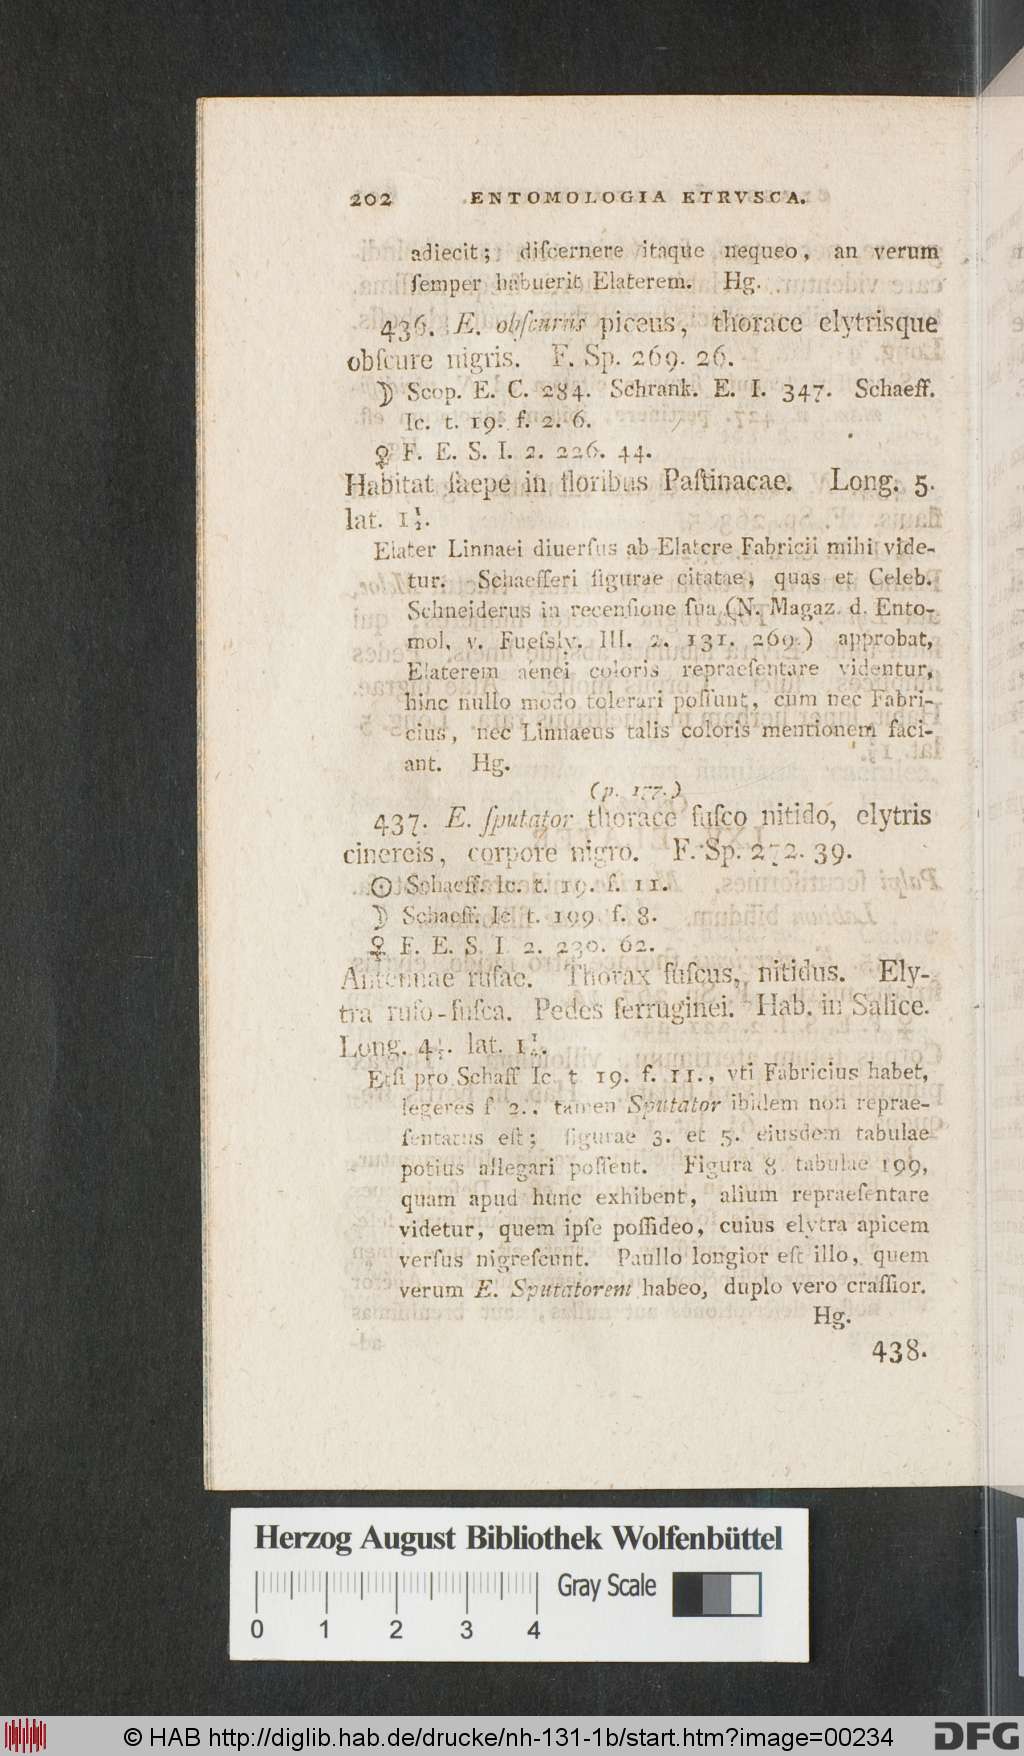 202 ENTOMOLOGIA ETRVSCA.
adiecit; diſcernere itaque nequeo, an verum
ſemper habuerit Elaterem. Hg.
436. E. obſcurus piceus, thorace elytrisque
obſcure nigris. F. Sp. 269. 26.
☽ Scop. E. C. 284. Schrank. E. I. 347. Schaeff.
Ic. t. 19. f. 2. 6.
♀ F. E. S. I. 2. 226. 44.
Habitat ſaepe in floribus Paſtinacae. Long. 5.
lat. 1½.
Elater Linnaei diuerſus ab Elatere Fabricii mihi vide-
tur. Schaefferi figurae citatae, quas et Celeb.
Schneiderus in recenſione ſua (N. Magaz. d. Ento-
mol. v. Fueſsly. III. 2. 131. 269.) approbat,
Elaterem aenei coloris repraeſentare videntur,
hinc nullo modo tolerari poſſunt, cum nec Fabri-
cius, nec Linnaeus talis coloris mentionem faci-
ant. Hg.
(p. 177.)
437. E. ſputator thorace fuſco nitido, elytris
cinereis, corpore nigro. F. Sp. 272. 39.
☉ Schaeff. Ic. t. 19. f. 11.
☽ Schaeff. Ic t. 199 f. 8.
♀ F. E. S. I. 2. 230. 62.
Antennae rufae. Thorax fuſcus, nitidus. Ely-
tra rufo-fuſca. Pedes ferruginei. Hab. in Salice.
Long. 4½. lat. 1½.
Etſi pro Schaff Ic. t 19. f. 11., vti Fabricius habet,
legeres f 2., tamen Sputator ibidem non reprae-
ſentatus eſt; figurae 3. et 5. eiusdem tabulae
potius allegari poſſent. Figura 8 tabulae 199,
quam apud hunc exhibent, alium repraeſentare
videtur, quem ipſe poſſideo, cuius elytra apicem
verſus nigreſcunt. Paullo longior eſt illo, quem
verum E. Sputatorem habeo, duplo vero craſſior.
Hg.
438.
Herzog August Bibliothek Wolfenbüttel
Gray Scale
0 1 2 3 4
© HAB http://diglib.hab.de/drucke/nh-131-1b/start.htm?image=00234 DFG